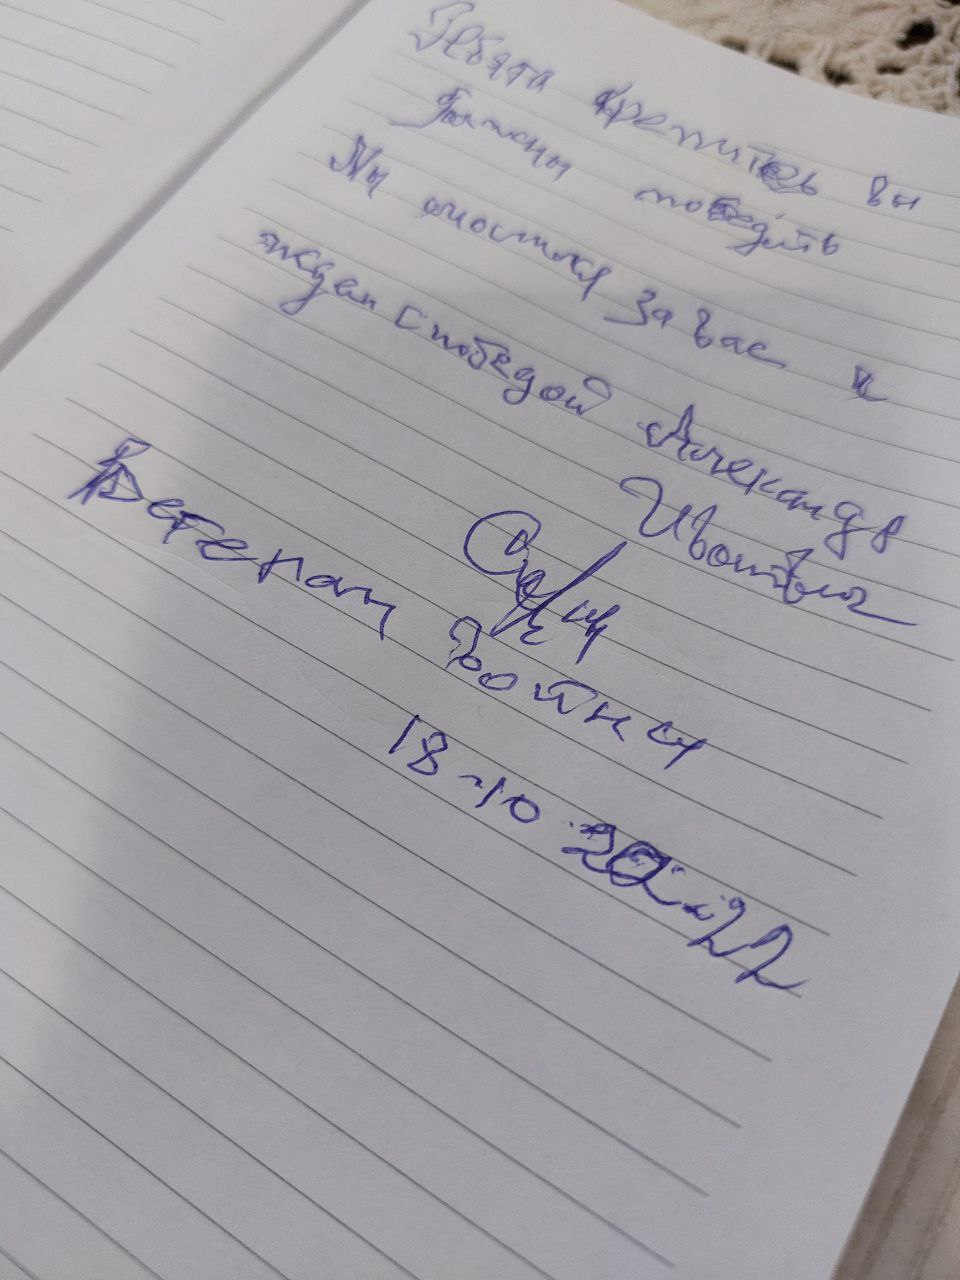 Ребята крепитесь вы
должны победить
Мы молимся за вас и
ждем с победой Александр
Иванович
Ветеран войны
18-10 2022